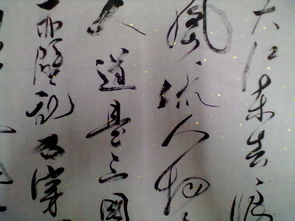 大江東去浪
風流人物
人道是三國
赤壁乱石穿